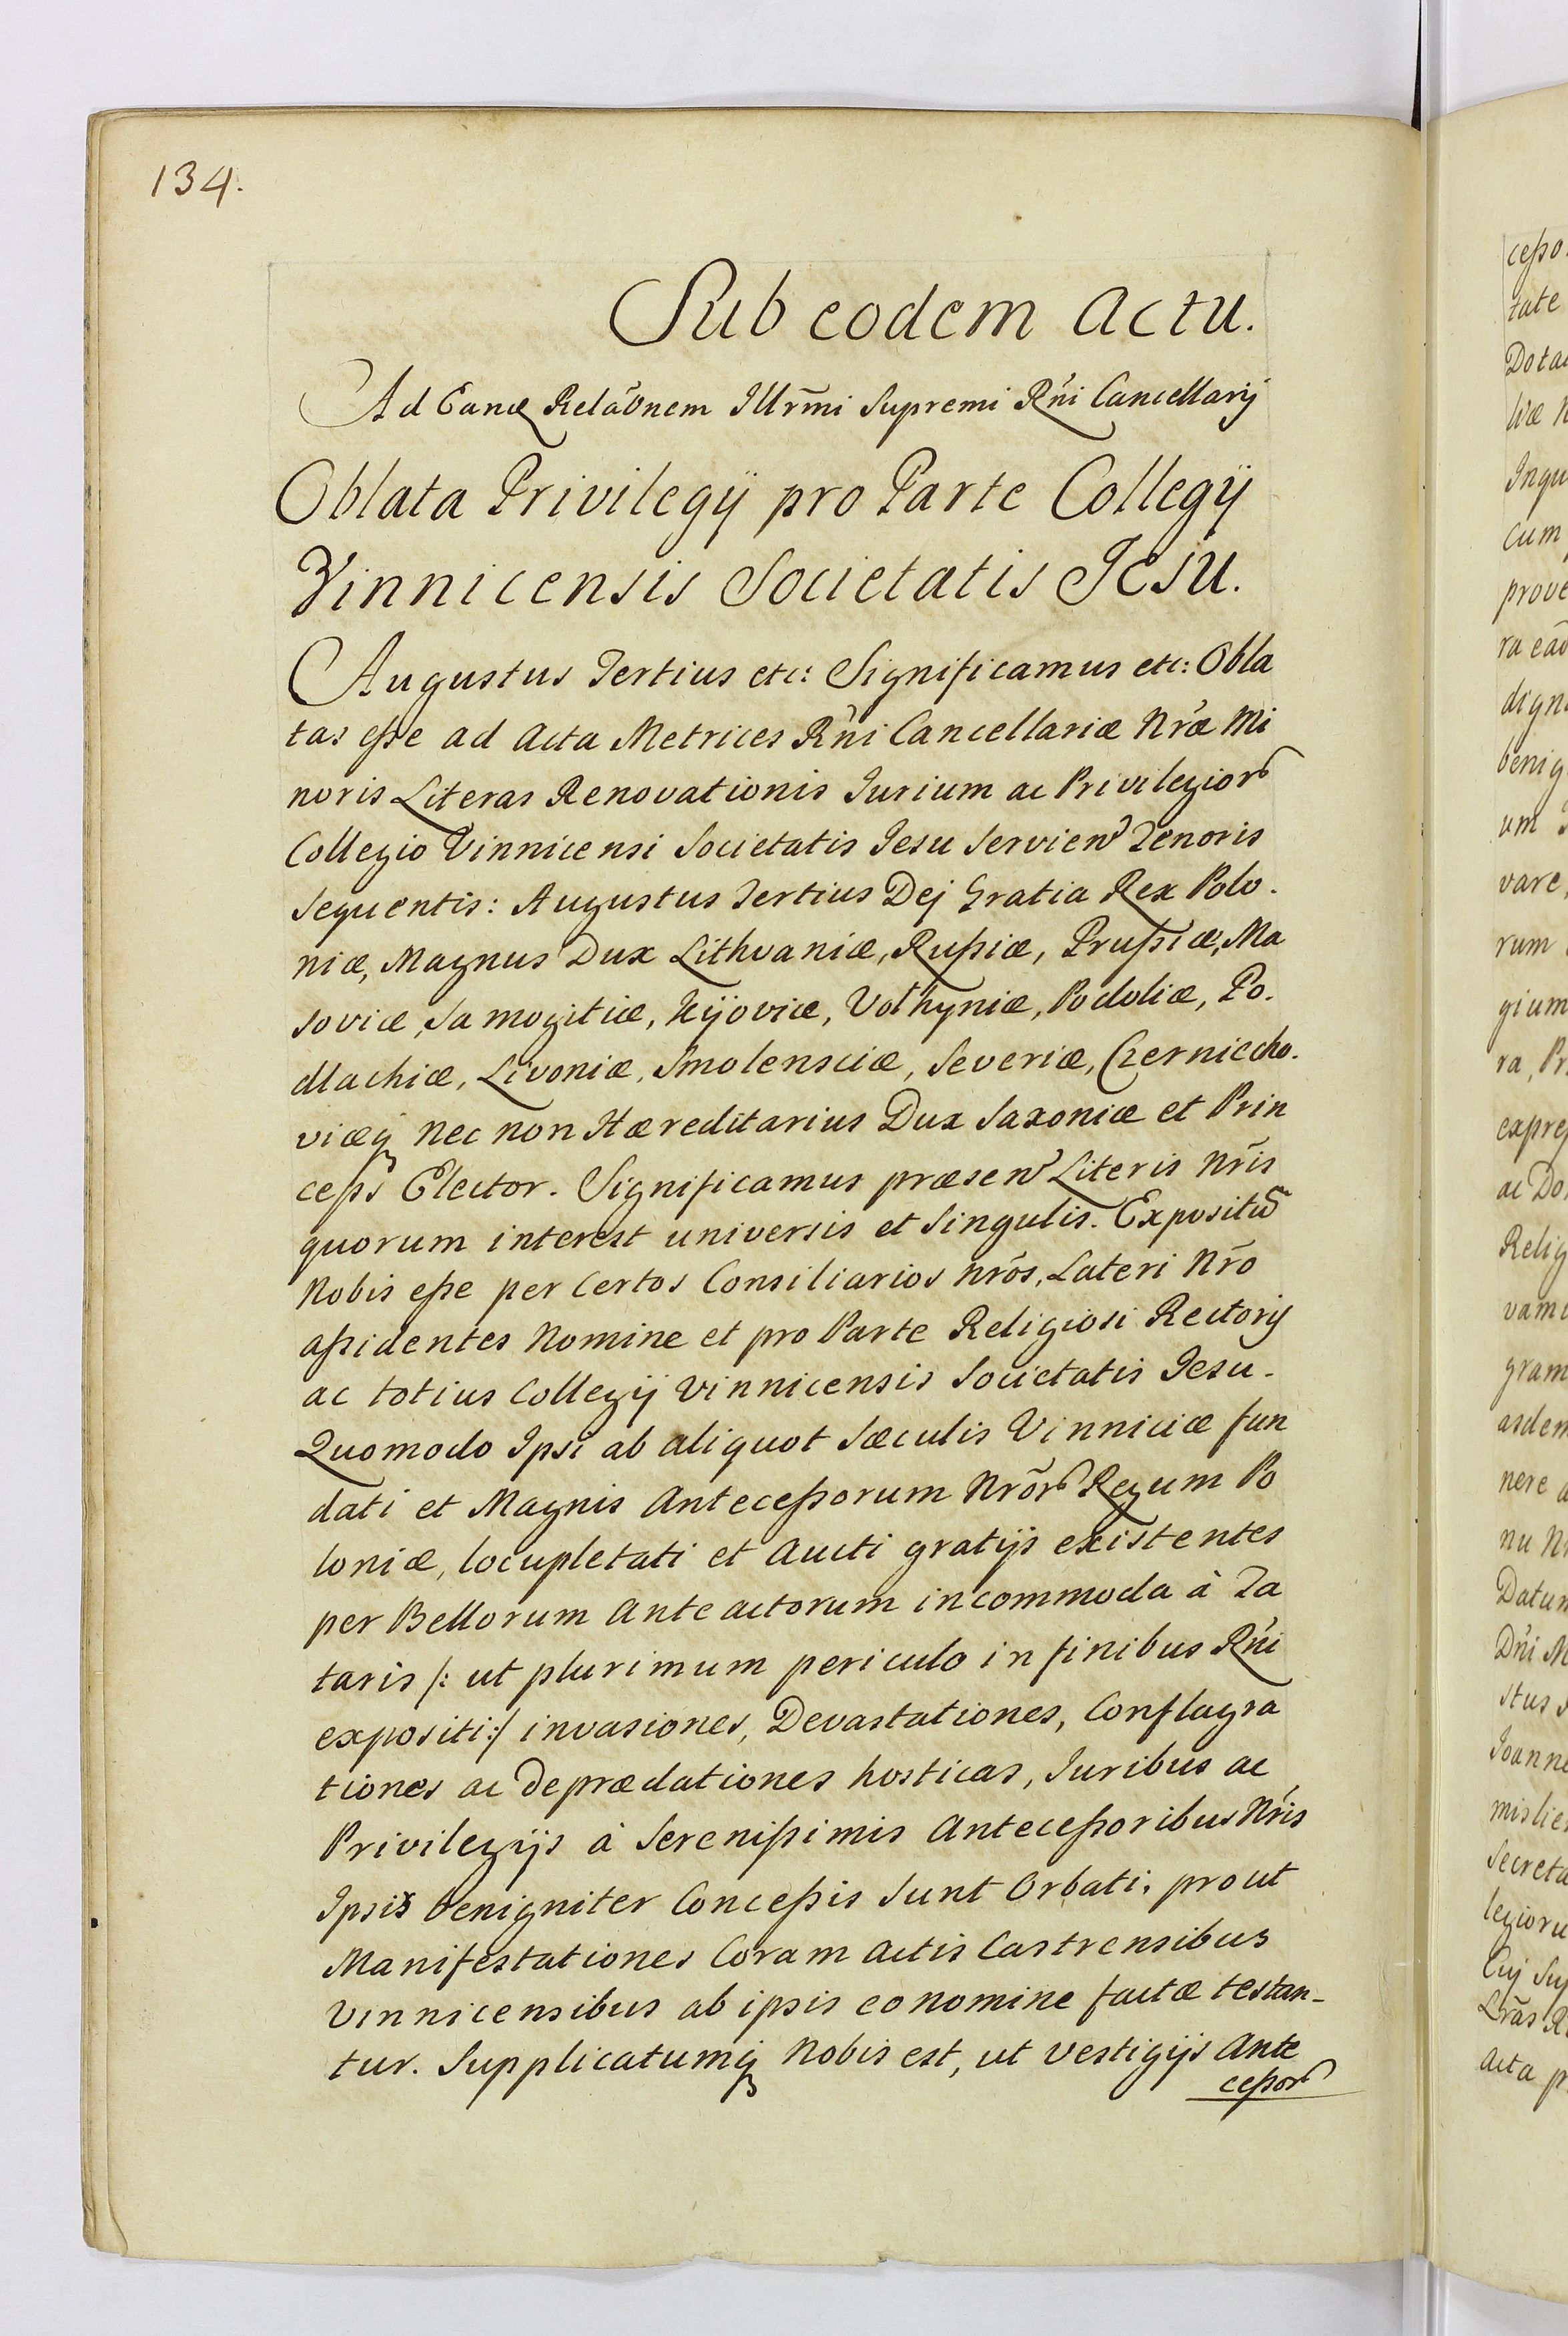 134.
Sub eodem Actu.
Ad Eandē Relãonem Illr̃mi Supremi Rñi Cancellarij
Oblata Privilegij pro Parte Collegij
Vinnicensis Societatis Jesu.
Augustus Tertius etc: Significamus etc: Obla
tas eße ad Acta Metrices Rñi Cancellariæ Nræ̃ Mi
noris Literas Renovationis Jurium ac Privilegior̃
Collegio Vinnicensi Societatis Jesu Servien̄ Tenoris
Sequentis: Augustus Tertius Dej Gratia Rex Polo-
niæ, Magnus Dux Lithvaniæ, Rußiæ, Prußiæ, Ma
soviæ, Samogitiæ, Kijoviæ, Volhyniæ, Podoliæ, Po-
dlachiæ, Livoniæ, Smolensciæ, Severiæ, Czerniecho-
viæq̃ Nec non Hæreditarius Dux Saxoniæ et Prin
ceps Elector. Significamus præsen̄ Literis Nr̃is
quorum interest universis et Singulis. Expositũ
Nobis eße per Certos Consiliarios Nr̃os, Lateri Nr̃o
aßidentes Nomine et pro Parte Religiosi Rectoris
ac totius Collegij Vinnicensis Societatis Jesu.
Quomodo Ipsi ab aliquot Sæculis Vinniciæ fun
dati et Magnis Anteceßorum Nr̃or̃ Regum Po
loniæ, locupletati et Aucti gratijs existentes
per Bellorum Ante actorum incommoda à Ta
taris /: ut plurimum periculo in finibus Rñi
expositi :/ invasiones, Devastationes, Conflagra
tiones ac deprædationes hosticas, Juribus ac
Privilegijs à Serenißimis Anteceßoribus Nr̃is
Ipsis benigniter Conceßis Sunt Orbati, prout
Manifestationes Coram Actis Castrensibus
Vinnicensibus ab ipsis eo Nomine factæ testan-
tur. Supplicatumq̃ Nobis est, ut Vestigijs Ante
ceßor̃
ceßo
tate
Inqu
cum
prove
digni
benig
um
vare,
rum
gium
ra, Pr
ac Do
Relig
vamu
gram
asdem
nere a
Datum
Dñi M
stus
Joanne
Secreta
legioru
Cuj Su
Acta p